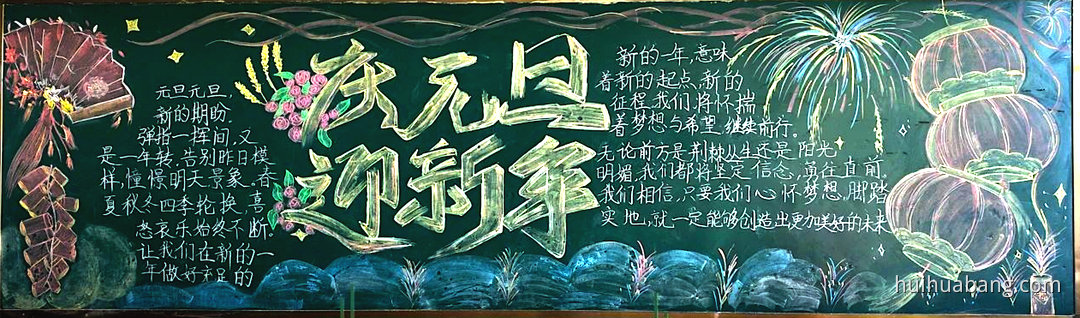 元旦元旦,
新的期盼.
弹指一挥间,又
是一年转.告别昨日模
样,憧憬明天景象.春
夏秋冬四季轮换,喜
怒哀乐始终不断。
让我们在新的一
年做好充足的
庆元旦
迎新年
新的一年,意味
着新的起点,新的
征程.我们将怀揣
着梦想与希望,继续前行。
无论前方是荆棘丛生还是阳光
明媚,我们都将坚定信念,勇往直前.
我们相信,只要我们心怀梦想,脚踏
实地,就一定能够创造出更加美好的未来
huihuabang.com